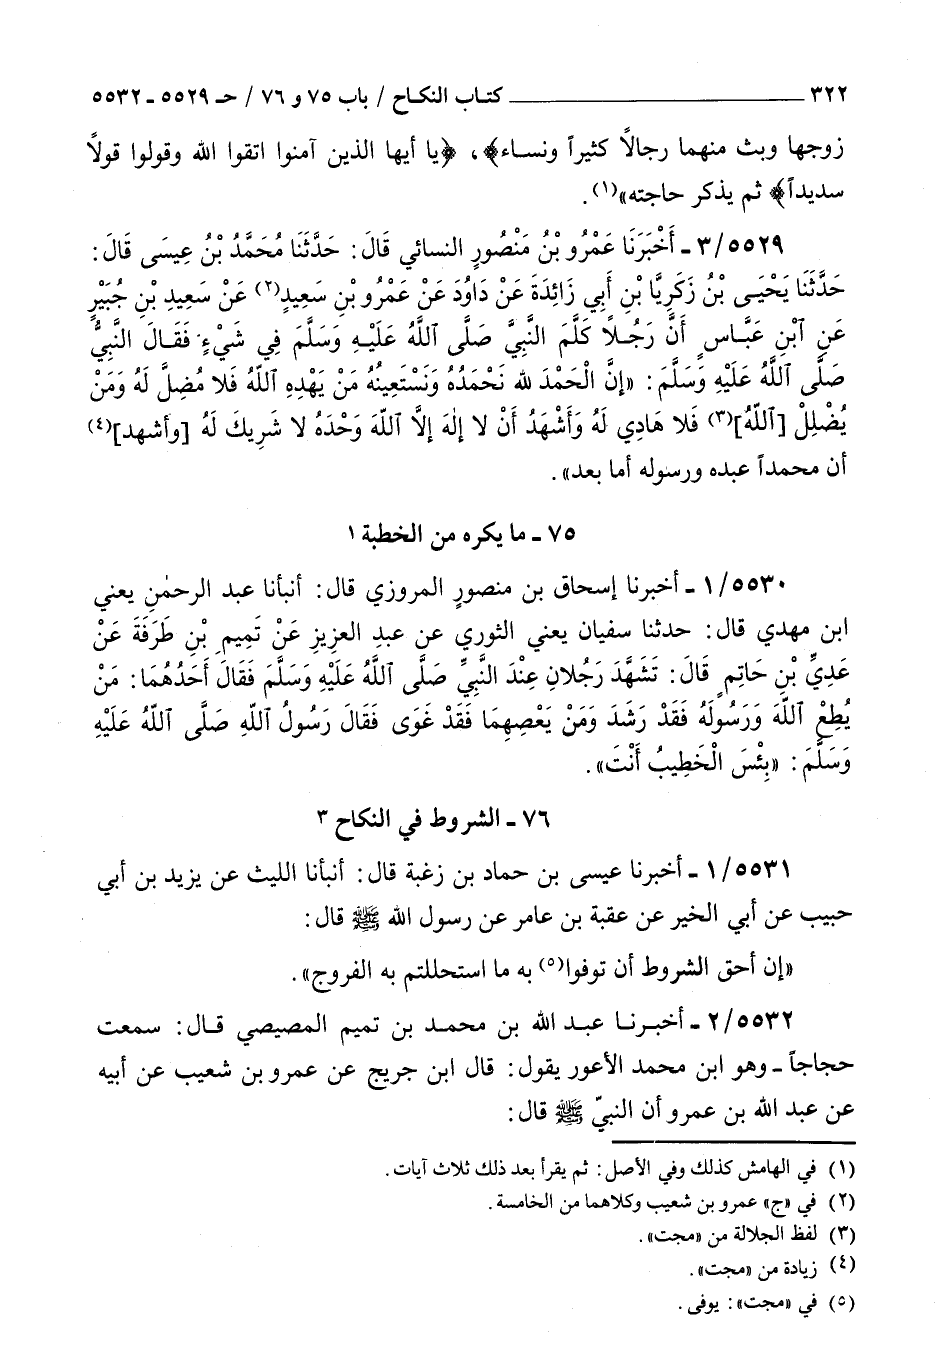 ٣٢٢ ـــــــــــــــــــــ كتـاب النكـاح / باب ٧٥ و ٧٦ / حـ ٥٥٢٩ ـ ٥٥٣٢
زوجها وبث منهما رجالاً كثيراً ونساء﴾، ﴿يا أيها الذين آمنوا اتقوا الله وقولوا قولاً
سديداً﴾ ثم يذكر حاجته»(١).
٣/٥٥٢٩ ـ أَخْبَرَنَا عَمْرُو بْنُ مَنْصُورٍ النسائي قَالَ: حَدَّثَنَا مُحَمَّدُ بْنُ عِيسَى قَالَ:
حَدَّثَنَا يَحْيَـى بْنُ زَكَرِيَّا بْنِ أَبِي زَائِدَةَ عَنْ دَاوُدَ عَنْ عَمْرِو بْنِ سَعِيدٍ(٢) عَنْ سَعِيدِ بْنِ جُبَيْرٍ
عَنِ ٱبْنِ عَبَّاسٍ أَنَّ رَجُـلاً كَلَّمَ النَّبِيَّ صَلَّى ٱللَّهُ عَلَيْـهِ وَسَلَّمَ فِي شَيْءٍ فَقَـالَ النَّبِيُّ
صَلَّى ٱللَّهُ عَلَيْهِ وَسَلَّمَ: «إنَّ الْحَمْدَ لله نَحْمَدُهُ وَنَسْتَعِينُهُ مَنْ يَهْدِهِ ٱللّهُ فَلا مُضِلَّ لَهُ وَمَنْ
يُضْلِلْ [ٱللّهُ](٣) فَلا هَادِي لَهُ وَأَشْهَدُ أَنْ لا إلٰهَ إلاَّ ٱللّهَ وَحْدَهُ لا شَرِيكَ لَهُ [وأشهد](٤)
أن محمداً عبده ورسوله أما بعد».
٧٥ ـ ما يكره من الخطبة ١
١/٥٥٣٠ ـ أخبرنا إسحاق بن منصورٍ المروزي قال: أنبأنا عبد الرحمٰنِ يعني
ابن مهدي قال: حدثنا سفيان يعني الثوري عن عبدِ العزيزِ عَنْ تَمِيمِ بْنِ طَرَفَةَ عَنْ
عَدِيِّ بْنِ حَاتِمٍ قَالَ: تَشَهَّدَ رَجُلانِ عِنْدَ النَّبِيِّ صَلَّى ٱللَّهُ عَلَيْهِ وَسَلَّمَ فَقَالَ أَحَدُهُمَا: مَنْ
يُطِعْ ٱللّهَ وَرَسُولَهُ فَقَدْ رَشَدَ وَمَنْ يَعْصِهِمَا فَقَدْ غَوَى فَقَالَ رَسُولُ ٱللّهِ صَلَّى ٱللّهُ عَلَيْهِ
وَسَلَّمَ: «بِئْسَ الْخَطِيبُ أَنْتَ».
٧٦ ـ الشروط في النكاح ٣
١/٥٥٣١ ـ أخبرنا عيسى بن حماد بن زغبة قال: أنبأنا الليث عن يزيد بن أبي
حبيب عن أبي الخير عن عقبة بن عامر عن رسول الله ﷺ قال:
«إن أحق الشروط أن توفوا(٥) به ما استحللتم به الفروج».
٢/٥٥٣٢ ـ أخبـرنـا عبـد الله بن محمـد بن تميم المصيصي قـال: سمعت
حجاجاً ـ وهو ابن محمد الأعور يقول: قال ابن جريج عن عمرو بن شعيب عن أبيه
عن عبد الله بن عمرو أن النبيّ ﷺ قال:
(١) في الهامش كذلك وفي الأصل: ثم يقرأ بعد ذلك ثلاث آيات.
(٢) في «ج» عمرو بن شعيب وكلاهما من الخامسة.
(٣) لفظ الجلالة من «مجت».
(٤) زيادة من «مجت».
(٥) في «مجت»: يوفى.